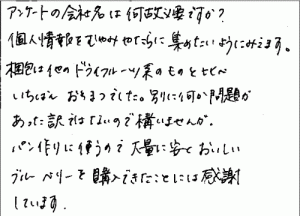 アンケートの会社名は何故必要ですか?
個人情報をむやみやたらに集めたいようにみえます。
梱包は他のドライフルーツ系のものと比べ
いちばんおちまつでした。別に何か問題が
あった訳ではないので構いませんが。
パン作りに使うので大量に安くおいしい
ブルーベリーを購入できたことには感謝
しています.